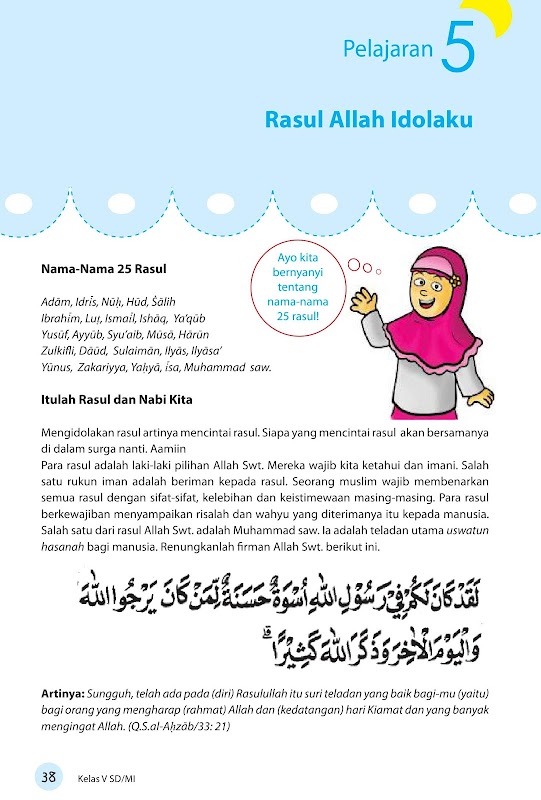 Pelajaran 5
Rasul Allah Idolaku
Ayo kita
bernyanyi
tentang
nama-nama
25 rasul!
Nama-Nama 25 Rasul
Adām, Idrīs, Nūḥ, Hūd, Ṡālih
Ibrahīm, Luṭ, Ismaīl, Ishāq, Ya’qūb
Yusūf, Ayyūb, Syu’aib, Mūsā, Hārūn
Zulkifli, Dāūd, Sulaimān, Ilyās, Ilyāsa’
Yūnus, Zakariyya, Yaḥyā, īsa, Muhammad saw.
Itulah Rasul dan Nabi Kita
Mengidolakan rasul artinya mencintai rasul. Siapa yang mencintai rasul akan bersamanya
di dalam surga nanti. Aamiin
Para rasul adalah laki-laki pilihan Allah Swt. Mereka wajib kita ketahui dan imani. Salah
satu rukun iman adalah beriman kepada rasul. Seorang muslim wajib membenarkan
semua rasul dengan sifat-sifat, kelebihan dan keistimewaan masing-masing. Para rasul
berkewajiban menyampaikan risalah dan wahyu yang diterimanya itu kepada manusia.
Salah satu dari rasul Allah Swt. adalah Muhammad saw. Ia adalah teladan utama uswatun
hasanah bagi manusia. Renungkanlah firman Allah Swt. berikut ini.
لَقَدْ كَانَ لَكُمْ فِيْ رَسُوْلِ اللهِ اُسْوَةٌ حَسَنَةٌ لِّمَنْ كَانَ يَرْجُوا اللهَ
وَالْيَوْمَ الْاٰخِرَ وَذَكَرَ اللهَ كَثِيْرًاۗ
Artinya: Sungguh, telah ada pada (diri) Rasulullah itu suri teladan yang baik bagi-mu (yaitu)
bagi orang yang mengharap (rahmat) Allah dan (kedatangan) hari Kiamat dan yang banyak
mengingat Allah. (Q.S.al-Aḥzāb/33: 21)
38 Kelas V SD/MI